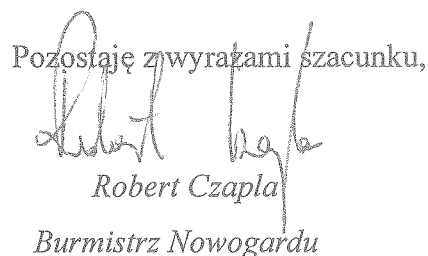 Pozostaję z wyrazami szacunku,
Robert Czapla
Robert Czapla
Burmistrz Nowogardu